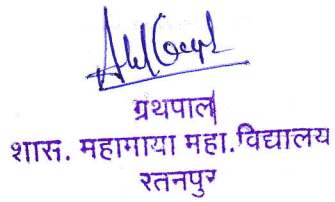 ग्रथपाल
शास. महामाया महा.विद्यालय
रतनपुर